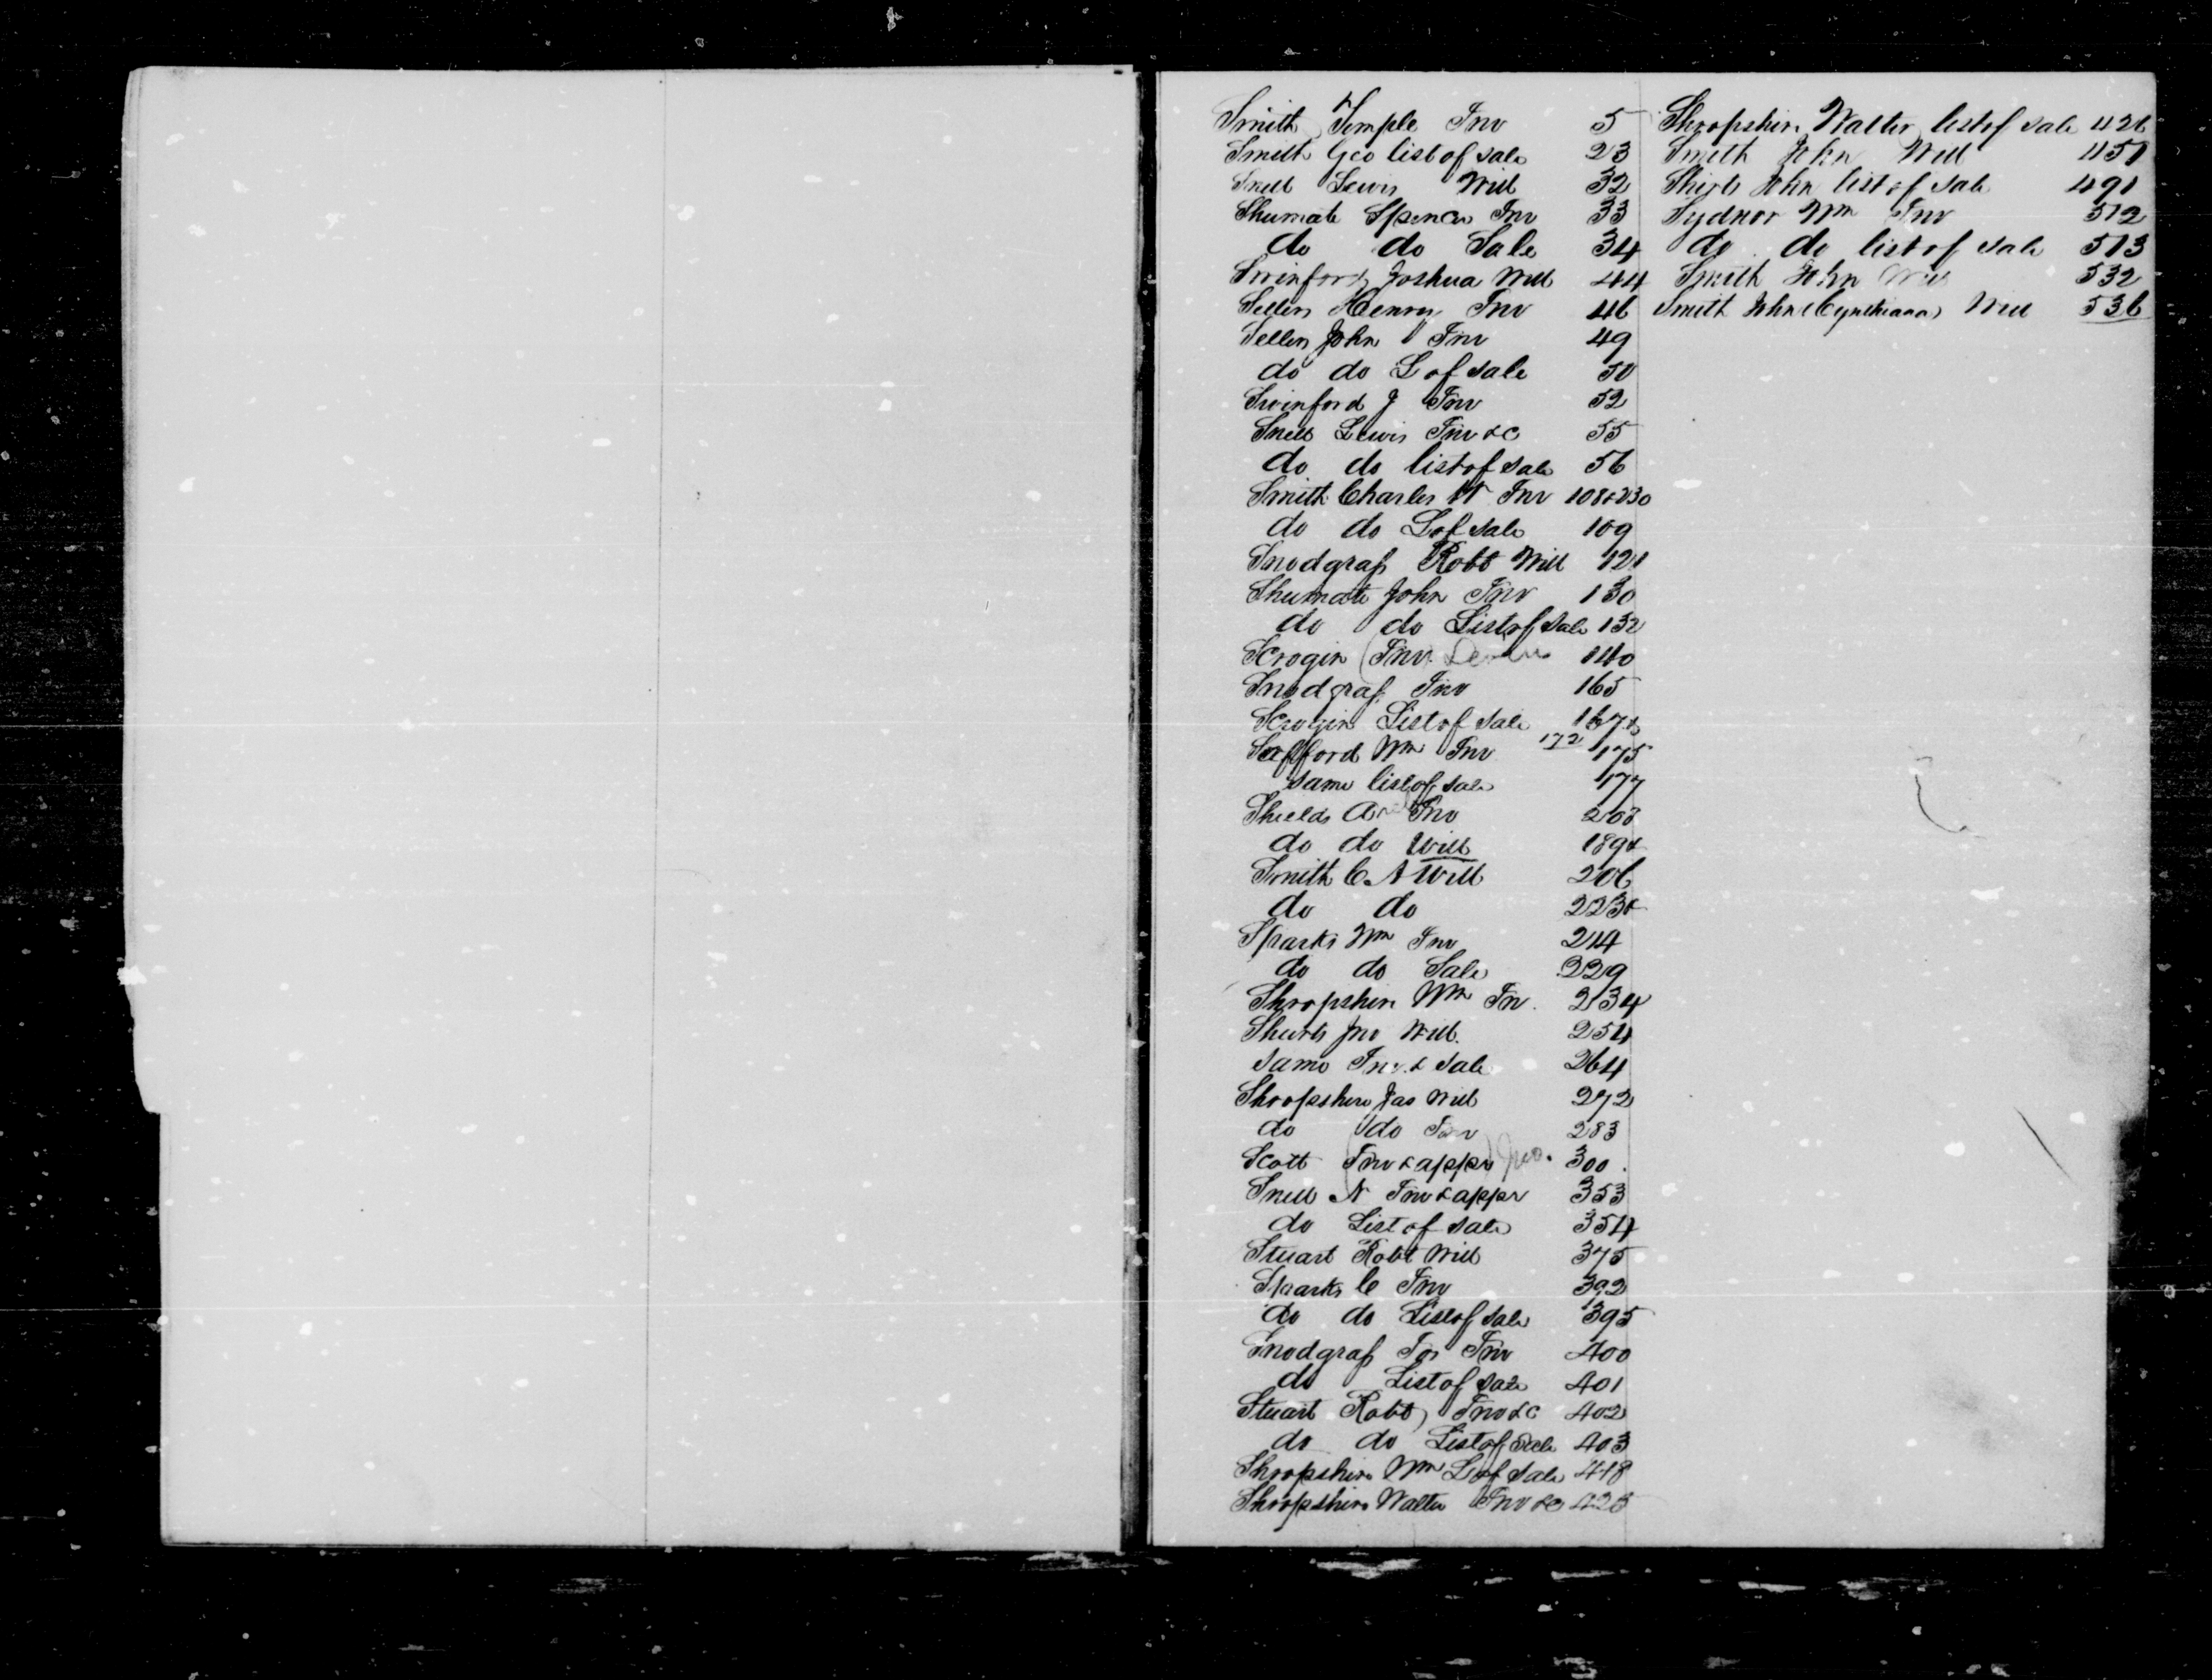 Smith Temple Inv 5
Smith Geo list of sale 23
Snell Lewis Will 32
Shumate Spencer Inv 33
do do Sale 34
Swinford Joshua Will 44
Sellers Henry Inv 46
Sellers John Inv 49
do do L of sale 50
Swinford J Inv 52
Snell Lewis Inv &c 55
do do list of sale 56
Smith Charles Inv 108 & 230
do do L of sale 109
Snodgrass Robt Will 121
Shumate John Inv 130
do do List of sale 132
Scrogin (Inv. 140
Snodgrass Inv 165
Scrogin List of sale 167&
172
Safford Wm Inv 175
same list of sale 177
Shields Inv 203
do do Will 189&
Smith C A Will 206
do do 223&
Sparks Wm Inv 214
do do Sale 229
Shropshire Wm In. 234
Jno Will. 254
same Inv. & sale 264
Shropshire Jas Will 272
do do Inv 283
Scott (Inv & appr) Jno. 300.
Snell N Inv & appr 353
do List of sale 354
Stuart Robt Will 375
Sparks C Inv 392
do do List of sale 395
Snodgrass Jos Inv 400
do List of sale 401
Stuart Robt Inv &c 402
do do List of sale 403
Shropshire Wm L of sale 418
Shropshire Walter Inv &c 425
Shropshire Walter list of sale 426
Smith John Will 451
John list of sale 491
Sydnor Wm Inv 512
do do list of sale 513
Smith John Will 532
Smith John (Cynthiana) Will 536